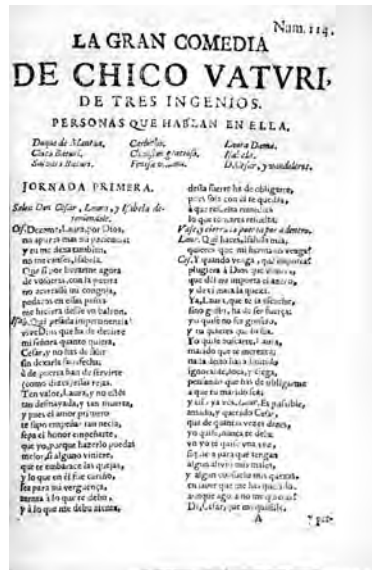 Num. 114.
LA GRAN COMEDIA
DE CHICO VATVRI,
DE TRES INGENIOS.
PERSONAS QUE HABLAN EN ELLA.
Duque de Mantua.
Chico Baturi.
Carlos gracioso.
Laura Dama.
Isabela.
JORNADA PRIMERA.
Salen Don Cesar, Laura, y Isabela de-
teniendole.
Ces. Dexame, Laura, por Dios,
no apures mas mi paciencia:
y tu me dexa tambien,
no me canses, Isabela.
Que si por librarme agora
de vosotras, con la puerta
no acertasse mi congoja,
pedazos en essas
me hiziera desde un balcon.
Isab. Qué pesada impertinencia!
vive Dios que ha de oirte
mi señora quanto quiera,
Cesar, y no has de salir
sin dexarla satisfecha;
ò de puerta han de servirte
(como dizes) essas rejas.
Ten valor, Laura, y no estès
tan desmayada, y tan muerta,
y pues el amor primero
te supo empeñar tan necia,
sepa el honor empeñarte,
que yo, porque hazerlo puedas
mejor, si alguno viniere,
que te embarace las quejas,
y lo que en él fue cariño,
sea para mi verguença,
atenta à lo que te debo,
y à lo que me debo atenta,
desta suerte he de obligarte,
pues sola con él te quedas,
à que
lo que tomares resuelta.
Vase, y cierra la puerta por adentro.
Laur. Qué hazes, Isabela mia,
quieres que mi hermano venga?
Ces. Y quando venga, qué importa?
pluguiera à Dios que viniera,
que dél me importa el
y de ti nada la quexa.
Ya, Laura, que te la escuche,
sino gusto, ha de ser fuerça;
yo quise no ser
y tu quieres que lo sea.
Yo quise buscarte, Laura,
ignorante, loca, y ciega,
pensando que has de obligarme
à que tu marido sea;
Laur. Es possible,
amado, y querido Cesar,
que de quantas vezes dizes,
yo quise, nunca te deba
un yo te quise una vez,
siquiera para que tengan
algun alivio mis males,
y algun consuelo mis quexas,
aunque agora no me quieras?
Di, Cesar, que me quisiste,
A